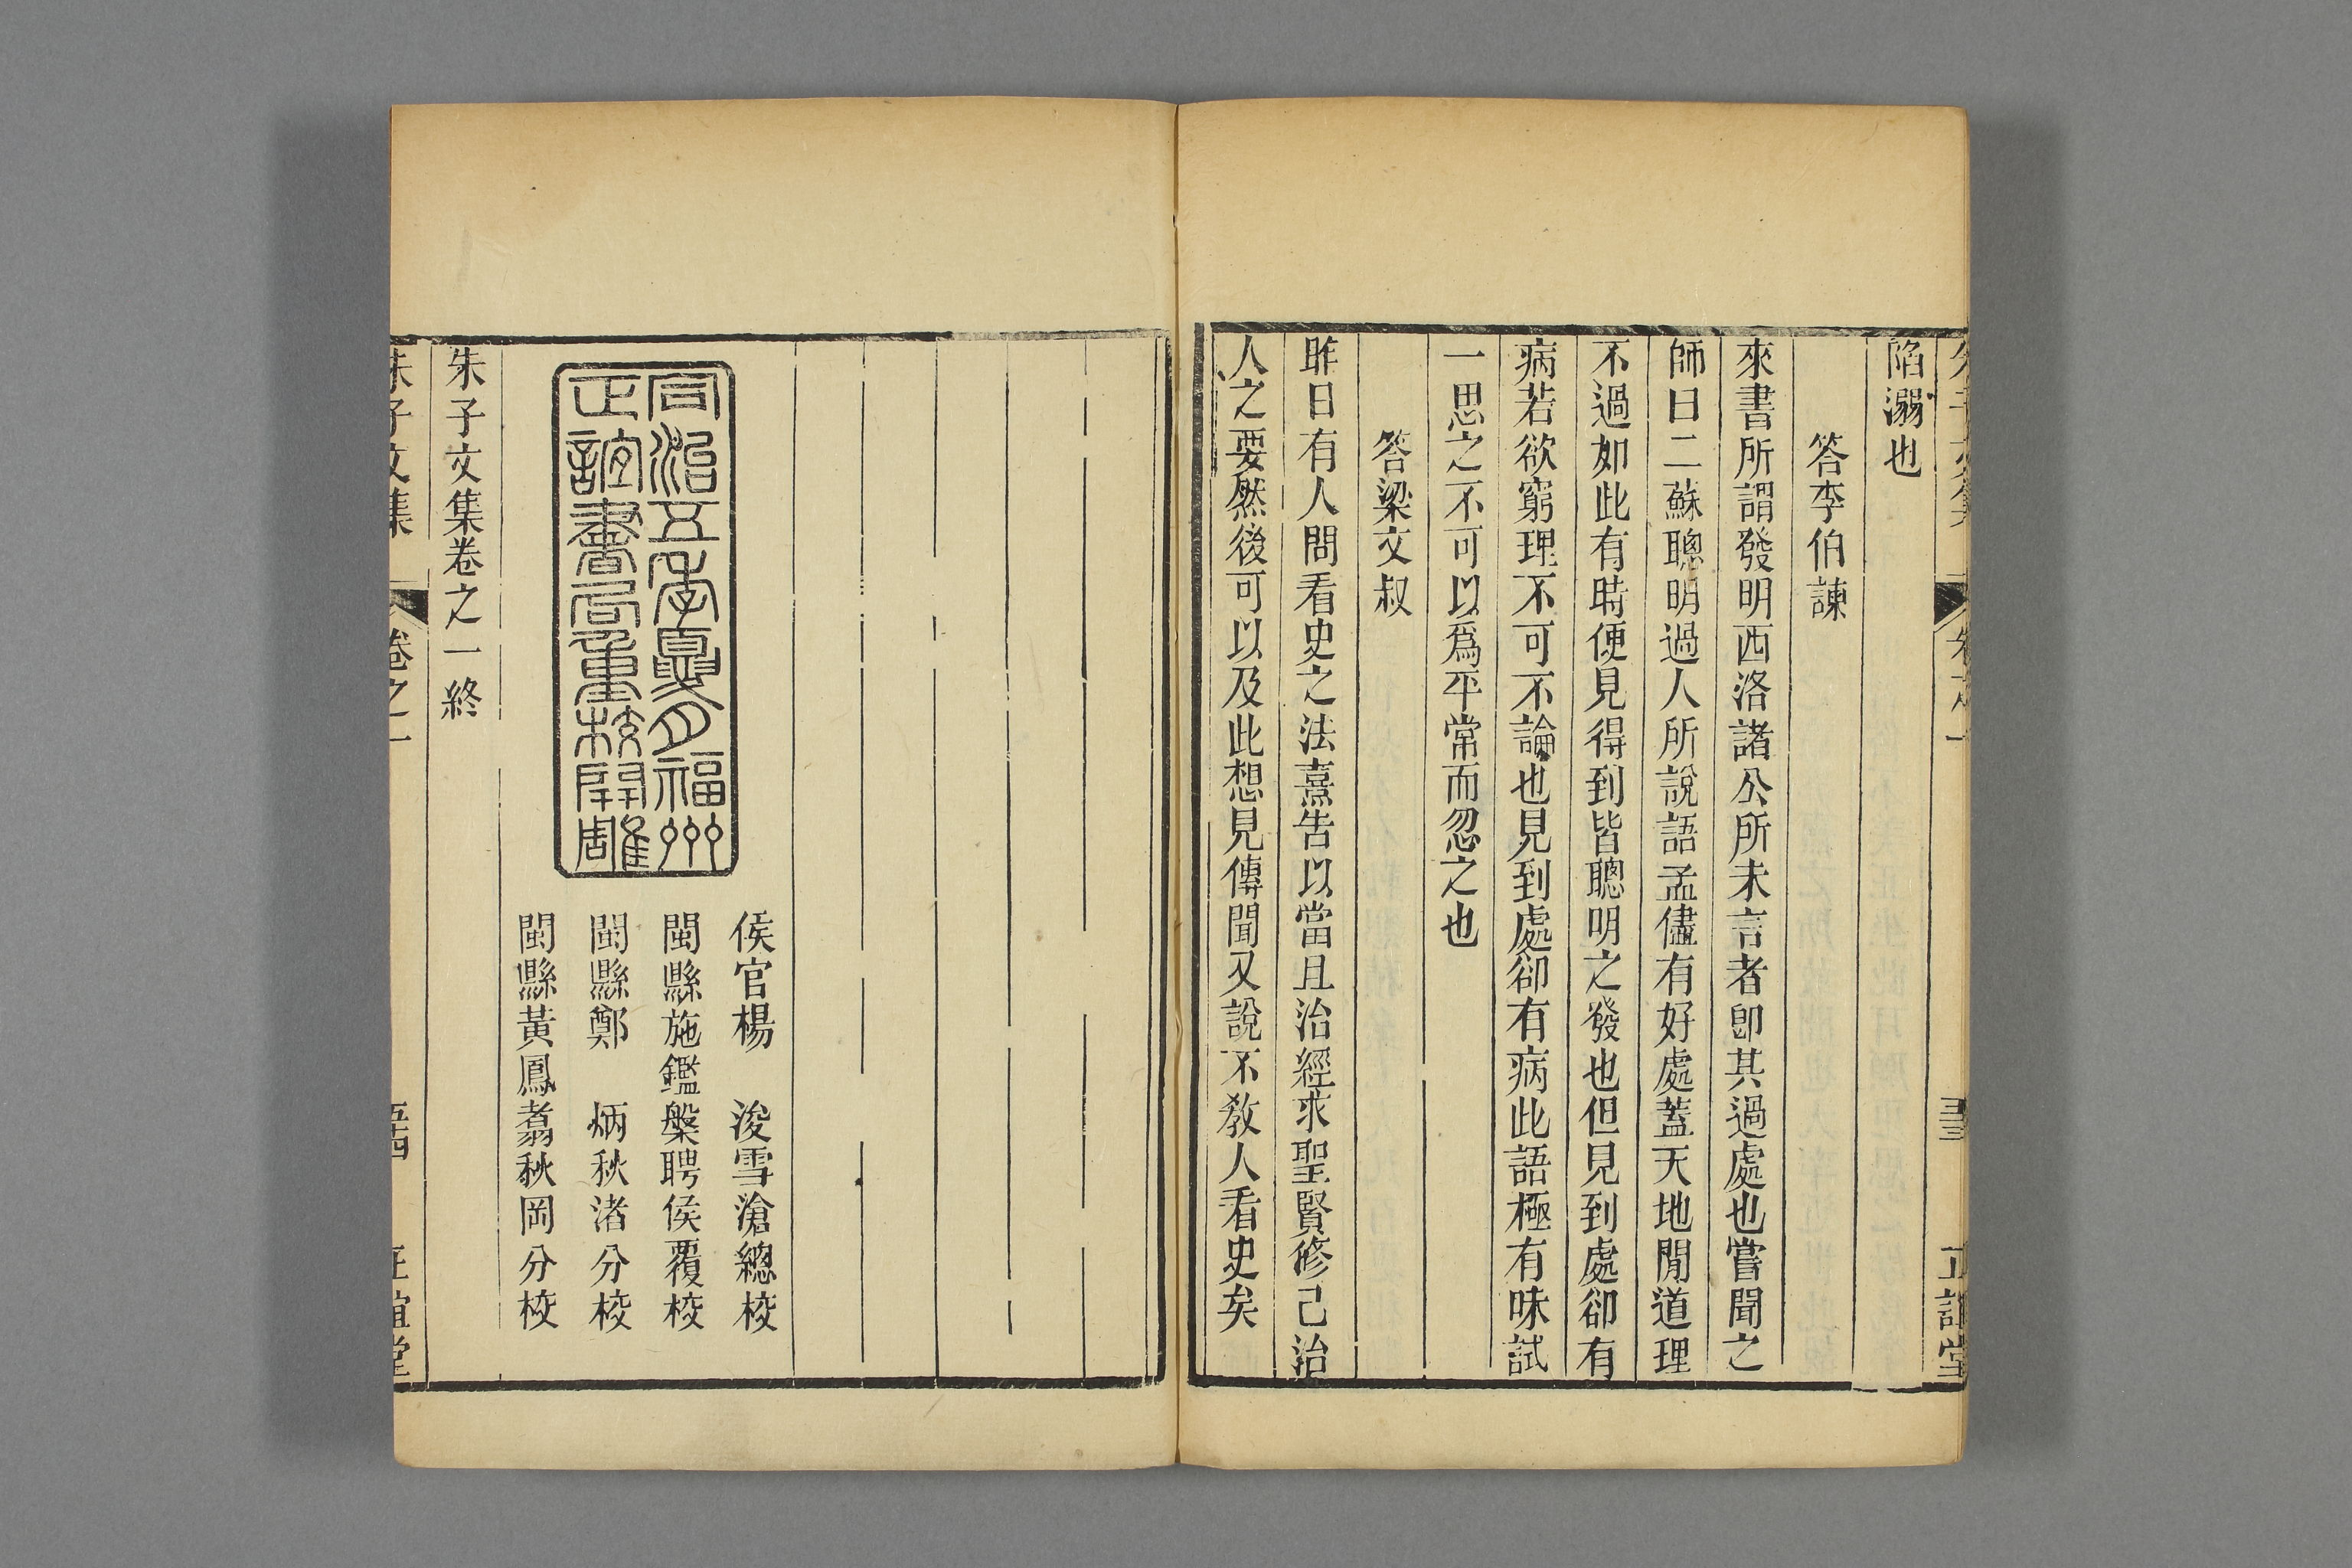 陷溺也
答李伯諫
來書所謂發明西洛諸公所未言者卽其過處也嘗聞之
師曰二蘇聰明過人所說語孟儘有好處蓋天地閒道理
不過如此有時便見得到皆聰明之發也但見到處卻有
病若欲窮理不可不論也見到處卻有病此語極有味試
一思之不可以爲平常而忽之也
答梁文叔
昨日有人問看史之法熹告以當且治經求聖賢修己治
人之要然後可以及此想見傳聞又說不敎人看史矣
同治五年夏月福州
正誼書局重校開雕
侯官楊　浚雪滄總校
閩縣施鑑槃聘侯覆校
閩縣鄭　炳秋渚分校
閩縣黃鳳翥秋岡分校
朱子文集卷之一終
朱子文集　卷之一　正誼堂